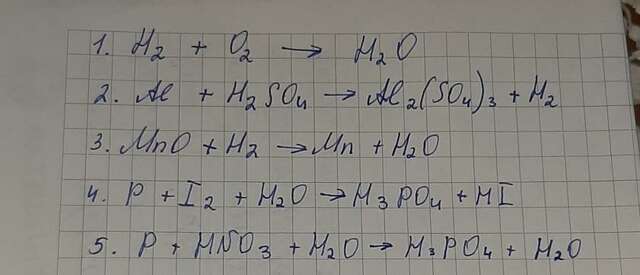 1. H₂ + O₂ → H₂O
2. Al + H₂SO₄ → Al₂(SO₄)₃ + H₂
3. MnO + H₂ → Mn + H₂O
4. P + I₂ + H₂O → H₃PO₄ + HI
5. P + HNO₃ + H₂O → H₃PO₄ + H₂O